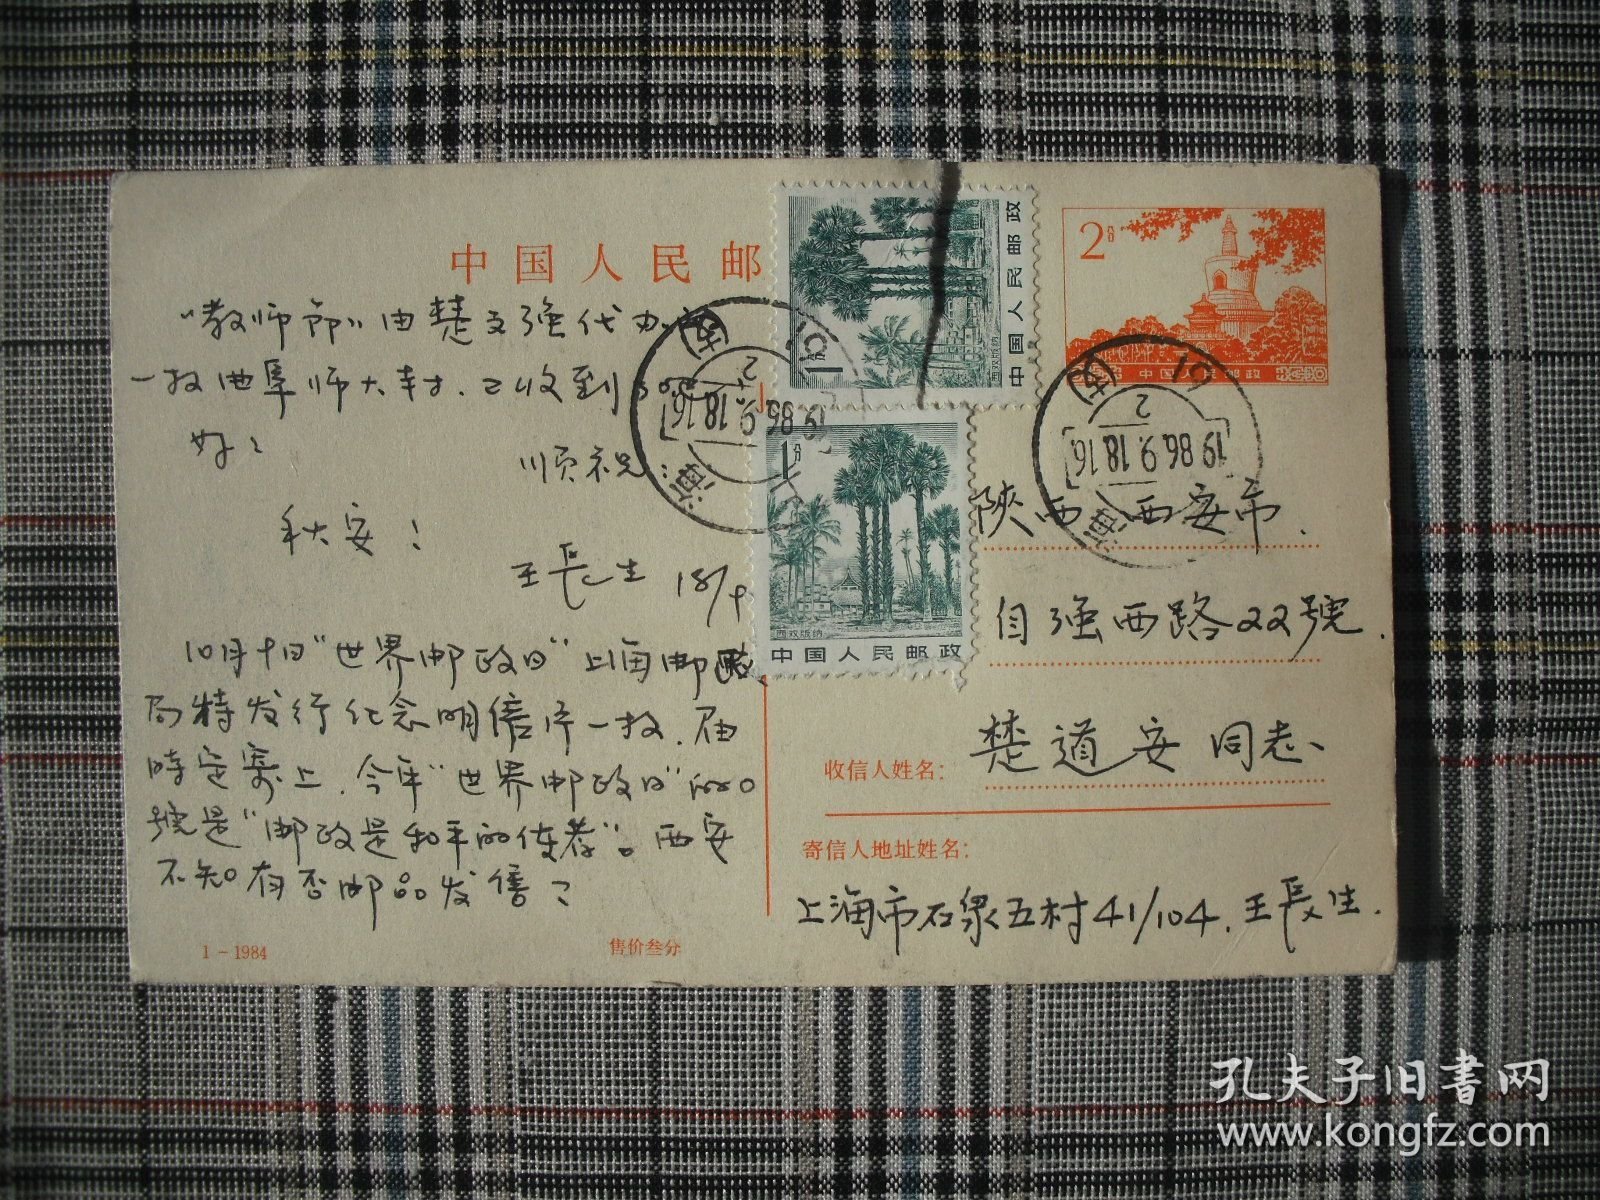 中国人民邮
“教师节”由楚文强代办
一枚曲阜师大封.已收到
好？
顺祝:
秋安！
王長生 18/9
10月十日“世界邮政日”上海邮政
局特发行纪念明信片一枚.届
時定寄上.今年“世界邮政日”的口
號是“邮政是和平的使者”。西安
不知有否邮品发售？
1-1984
售价叁分
中国人民邮政
1分
西双版纳
1分
西双版纳
中国人民邮政
2分
中国人民邮政
上海
1986.9.18.16
2
上海
1986.9.18.16
2
陝西 西安市.
自强西路22號.
收信人姓名:
楚道安 同志、
寄信人地址姓名:
上海市石泉五村41/104.王長生.
孔夫子旧書网
www.kongfz.com